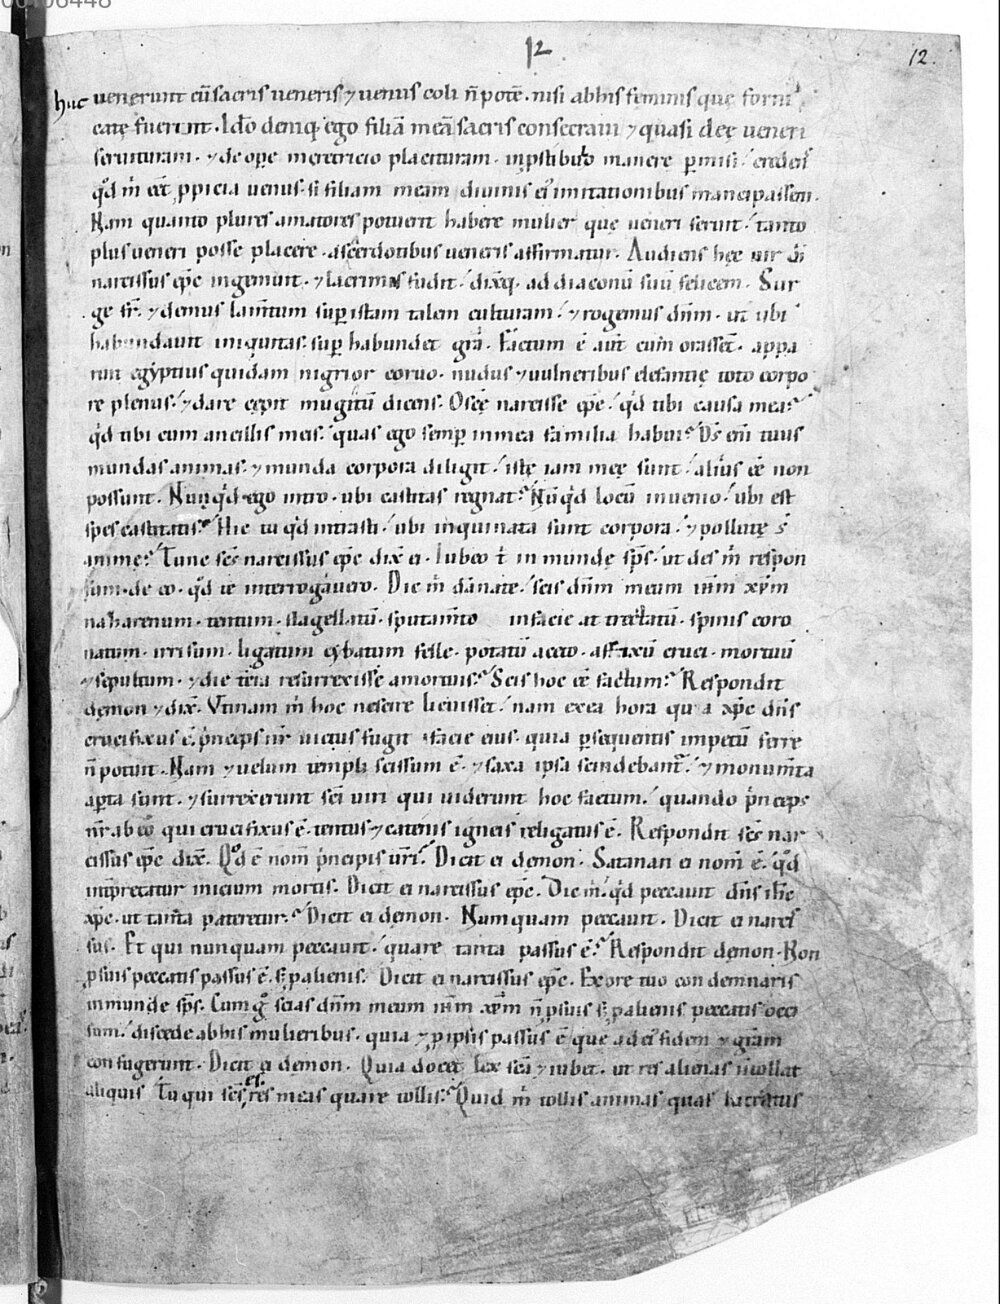 00106448
12
12.
huc uenerunt cū sacris ueneris ⁊ uenus coli ñ potē. nisi abhis feminis quę forni
catę fuerunt. Ido deniq; ego filiā meā sacris consecraui ⁊ quasi deę ueneri
seruituram. ⁊ de opę meretricio placituram. in pstibulo manere pmisi. credens
qd m̄ eēt ppicia uenus. si filiam meam diuinis ei imitationibus mancipassem.
Nam quanto plures amatores potuerit habere mulier quę ueneri seruit. tanto
plus ueneri posse placere. asacerdotibus ueneris affirmatur. Audiens hęc uir di
narcissus epc ingemuit. ⁊ lacrimas fudit. dixq. ad diaconū suū felicem. Sur
ge fr̄. ⁊ demus lamtum sup istam talem culturam. ⁊ rogemus dnm. ut ubi
habundauit iniquitas. sup habundet grā. Factum ē aut cum orasset. appa
ruit egyptius quidam nigrior coruo. nudus ⁊ uulneribus elefantię toto corpo
re plenus. ⁊ dare cępit mugitū dicens. O scē narcisse epc. qd tibi causa mea.
qd tibi cum ancillis meis. quas ego semp in mea familia habui. Ds eni tuus
mundas animas. ⁊ munda corpora diligit. istę iam meę sunt. alius eē non
possunt. Nunqd ego intro. ubi castitas regnat. Nūqd locū inuenio. ubi est
spes castitatis. Hic tu qd intrasti. ubi inquinata sunt corpora. ⁊ pollutę s̄
animę. Tunc scs narcissus epc dix̄ ei. Iubeo t̄ in munde sps. ut des m̄ respon
sum. de eo. qd te interrogauero. Dic m̄ dānate. scis dnm meum ihm xpm
naharenum. tentum. flagellatū. sputamto in facie at trectatū. spinis coro
natum. irrisum. ligatum cybatum felle. potatū aceto. affixū cruci. mortuū
⁊ sepultum. ⁊ die tēia resurrexisse amortuis. Scis hoc eē factum. Respondit
dęmon ⁊ dix̄. Vtinam m̄ hoc nescire licuisset. nam exea hora qua xpc dns
crucifixus ē. pnceps nr̄ uictus fugit afacie eius. quia psequentis impetū ferre
ñ potuit. Nam ⁊ uelum templi scissum ē. ⁊ saxa ipsa scindebant. ⁊ monumta
apta sunt. ⁊ surrexerunt sci uiri qui uiderunt hoc factum. quando pnceps
nr̄ ab eo qui crucifixus ē. tentus ⁊ catenis igneis religatus ē. Respondit scs nar
cissus epc dix̄. Qd ē nom pncipis uri. Dicit ei demon. Satanan ei nom̄ ē. qd
intpretatur inicium mortis. Dicit ei narcissus epc. Dic m̄. qd peccauit dns ihc
xpc. ut tanta pateretur. Dicit ei dęmon. Numquam peccauit. Dicit ei narcis
sus. Et qui nunquam peccauit. quare tanta passus ē. Respondit dęmon. Non
psuis peccatis passus ē. s; palienis. Dicit ei narcissus epc. Exore tuo condemnaris
inmunde sps. Cum g scias dnm meum ihm xpm ñ psuis s; palienis peccatis occi
sum. discede abhis mulieribus. quia ⁊ pipsis passus ē que ad ei fidem ⁊ gram
confugerunt. Dicit ei demon. Quia docet lex scā ⁊ iubet. ut res alienas ñ tollat
aliquis Tu qui scs es, res meas quare tollis. Quid m̄ tollis animas quas